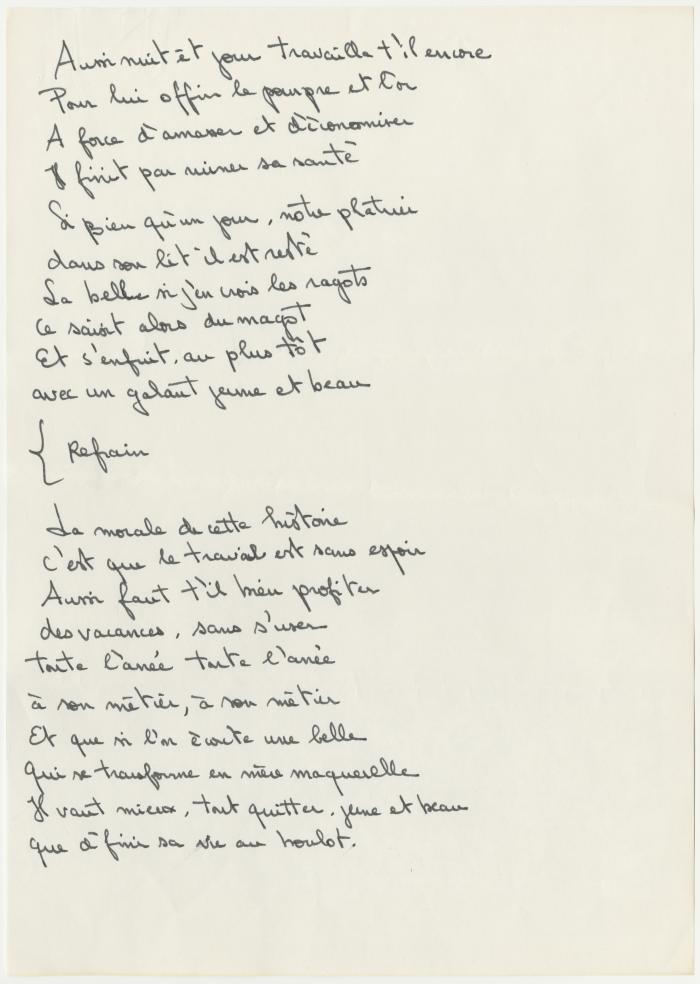 Aussi nuit et jour travailla t'il encore
Pour lui offrir la pourpre et l'or
A force d'amasser et d'économiser
Il finit par ruiner sa santé
Si bien qu'un jour, notre platrier
dans son lit il est resté
La belle si j'en crois les ragots
ce saisit alors du magot
Et s'enfuit, au plus tôt
avec un galant jeune et beau
{ Refrain
La morale de cette histoire
c'est que le travail est sans espoir
Aussi faut t'il bien profiter
des vacances, sans s'user
toute l'anée toute l'anée
à son métier, à son métier
Et que si l'on écoute une belle
qui se transforme en mère maquerelle
Il vaut mieux, tout quitter, jeune et beau
que d finir sa vie au boulot.